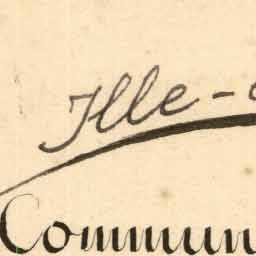 Ille-
Commun